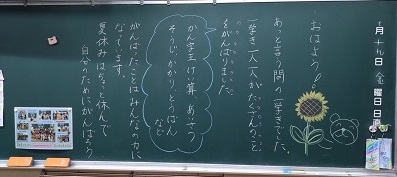 十月十九日金曜日
日直
おはよう！
あっと言う間の一学きでした。
一学き一人一人がたくさんのこと
をがんばりました。
かん字 計算 あいさつ
そうじ かかり とうばん
など
がんばったことはみんなの力に
なっています。
夏休みはちょっと休んで
自分のためにがんばろう